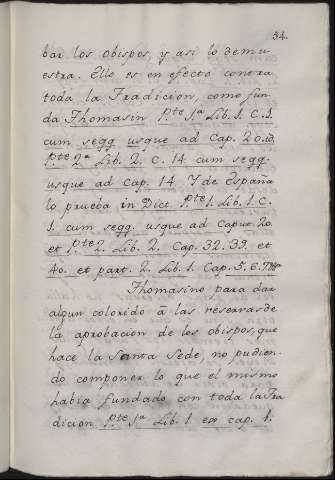 34.
bar los obispos, y asi lo demu
estra. Ello es en efecto contra
toda la Tradicion, como fun
da Thomasin Pte 1a Lib. 1. C. 1.
cum segg usque ad Cap. 20. id.
Pte 2a Lib. 2. C. 14 cum segg.
usque ad Cap. 14. Y de España
lo prueba in Dict. Pte 1. Lib. 1. C.
1. cum segg. usque ad Caput 20.
et Pte 2. Lib. 2. Cap. 32. 39. et
40. et part. 2. Lib. 1. Cap. 5. 6.
Thomasino para dar
algun colorido à las reservas de
la aprobacion de los obispos, que
hace la Santa Sede, no pudien-
do componer lo que el mismo
habia fundado con toda la Tra
dicion Pte 1a Lib. 1 ex cap. 1.